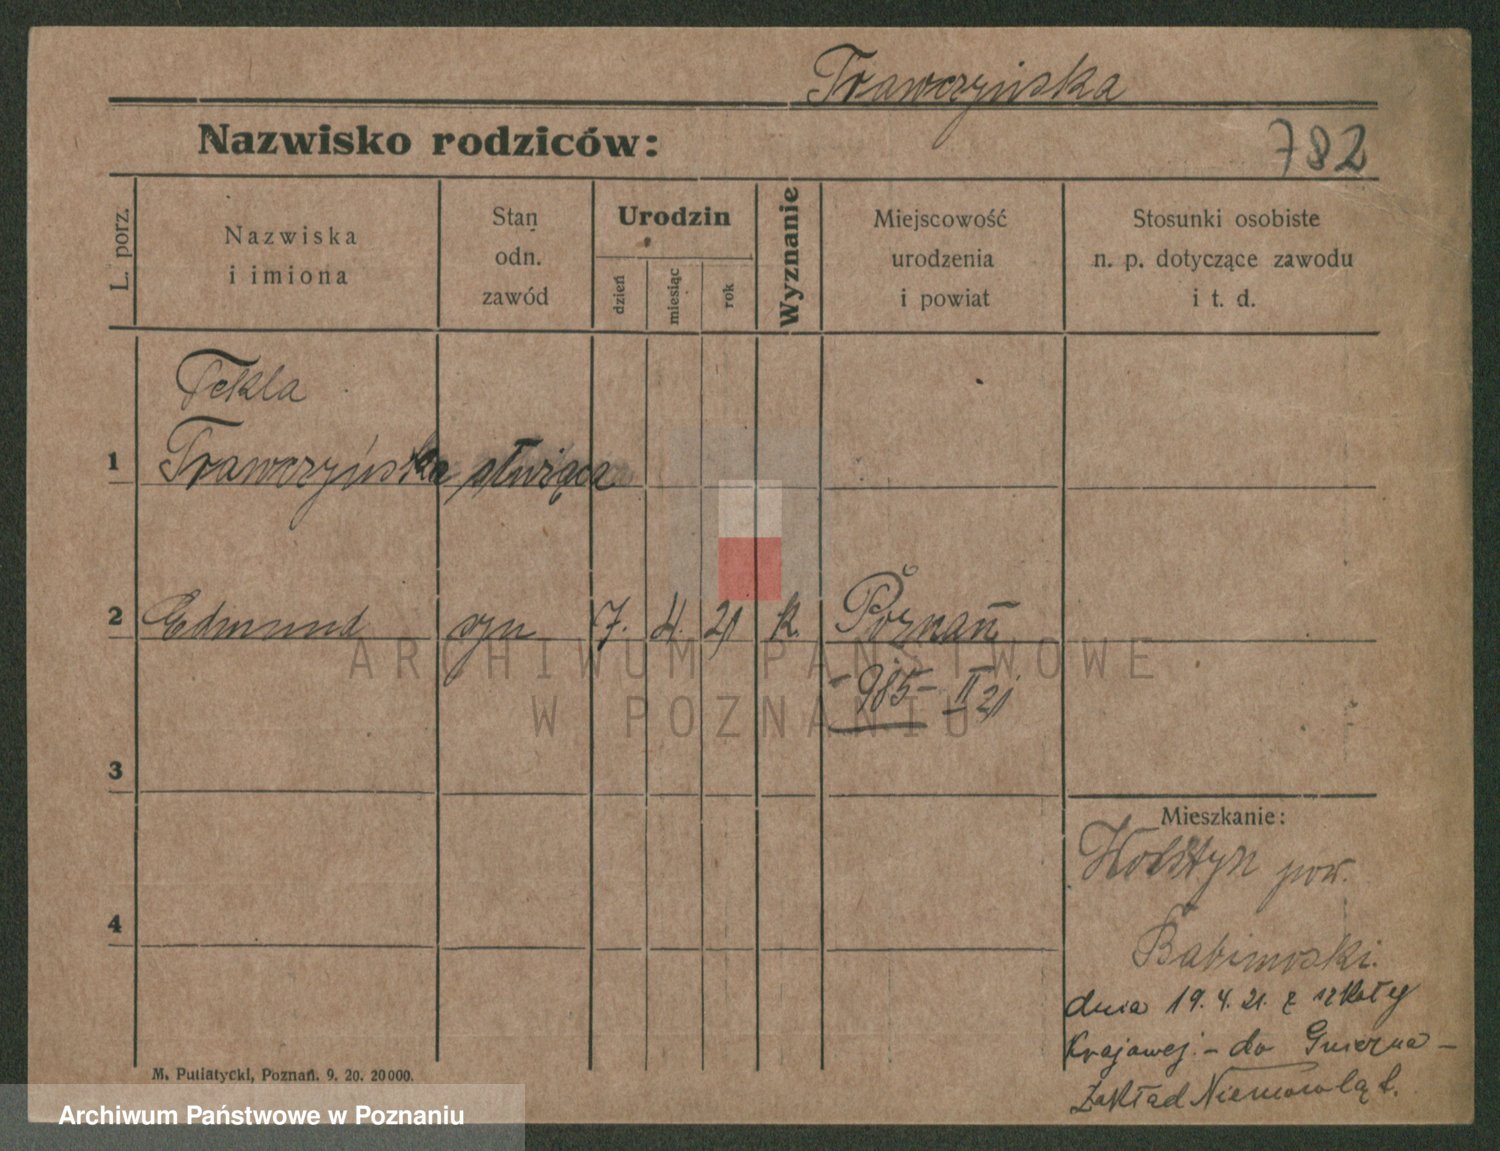 Trawczyńska
Nazwisko rodziców:
782
L. porz.
Nazwiska
i imiona
Stan
odn.
zawód
Urodzin
dzień
miesiąc
rok
Wyznanie
Miejscowość
urodzenia
i powiat
Stosunki osobiste
n. p. dotyczące zawodu
i t. d.
Tekla
1 Trawczyńska służąca
2 Edmund syn 7. 4. 21 k. Poznań
- 985 - II 21
ARCHIWUM PAŃSTWOWE
W POZNANIU
3
Mieszkanie:
Wolsztyn pow.
4
Babimoski.
dnia 19. 4. 21. z szkoły
Krajowej - do Gniezna -
Zakład Niemowląt.
M. Putiatycki, Poznań. 9. 20. 20000.
Archiwum Państwowe w Poznaniu